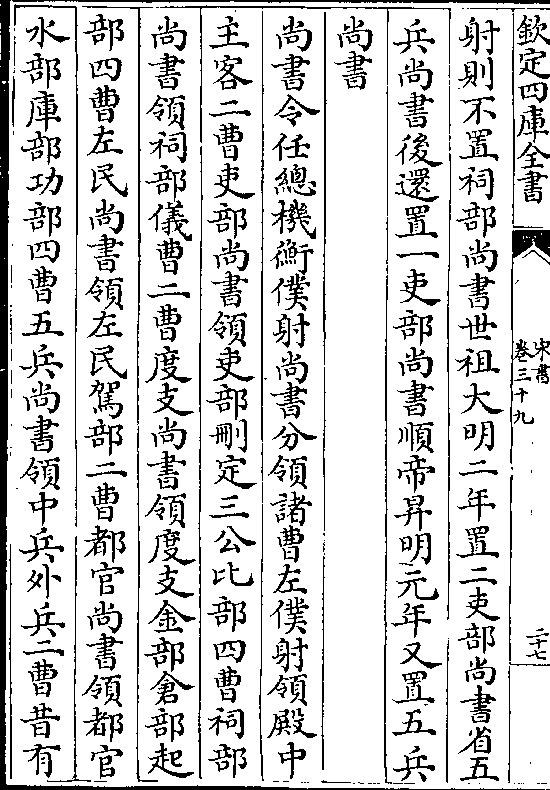 欽定四庫全書
宋書
卷三十九
二十七
射則不置祠部尚書世祖大明二年置二吏部尚書省五
兵尚書後還置一吏部尚書順帝昇明元年又置五兵
尚書
尚書令任總機衡僕射尚書分領諸曹左僕射領殿中
主客二曹吏部尚書領吏部刪定三公比部四曹祠部
尚書領祠部儀曹二曹度支尚書領度支金部倉部起
部四曹左民尚書領左民駕部二曹都官尚書領都官
水部庫部功部四曹五兵尚書領中兵外兵二曹昔有